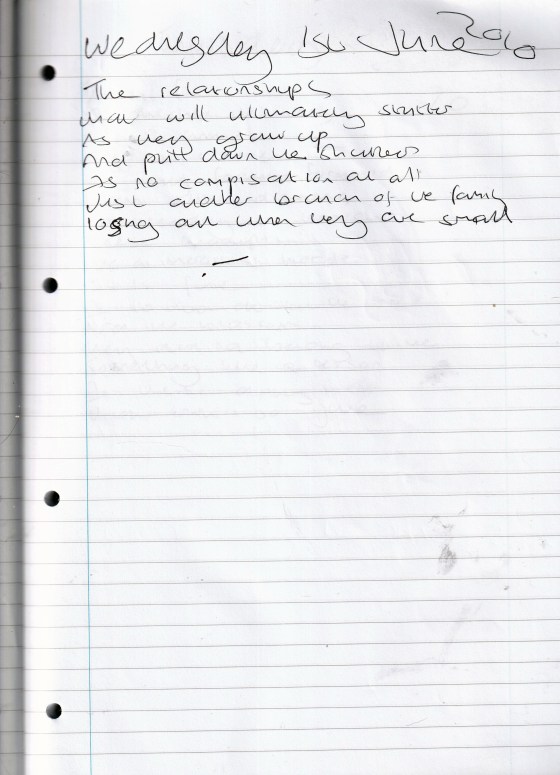 Wednesday 1st June 2010
The relationships
that will ultimately stutter
As they grow up
And pull down the shutters
Is no compisation at all
Just another branch of the family
losing out when they are small